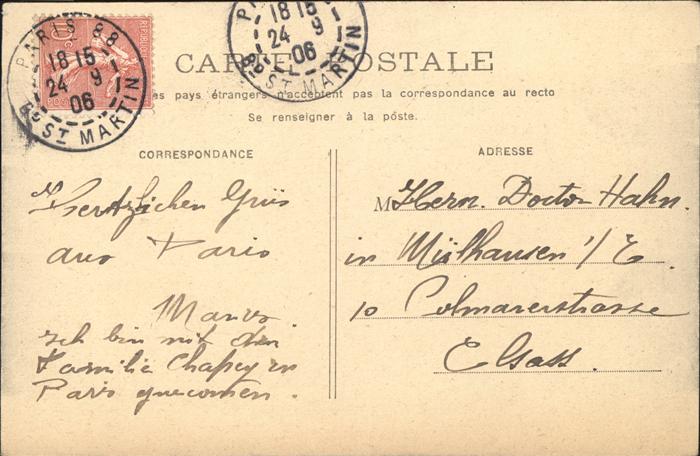 PARIS 88
18 15
24 9
06
Bd ST MARTIN
10
18 15
24 9
06
Bd ST MARTIN
CARTE POSTALE
es pays étrangers n'acceptent pas la correspondance au recto
Se renseigner à la poste.
CORRESPONDANCE
Hertzlichen Grüs
aus Paris
ich bin mit der
Familie Chapey in
Paris
ADRESSE
M Herrn Doctor Hahn.
in Mülhausen i/E.
10 Colmarerstrasse
Elsass.